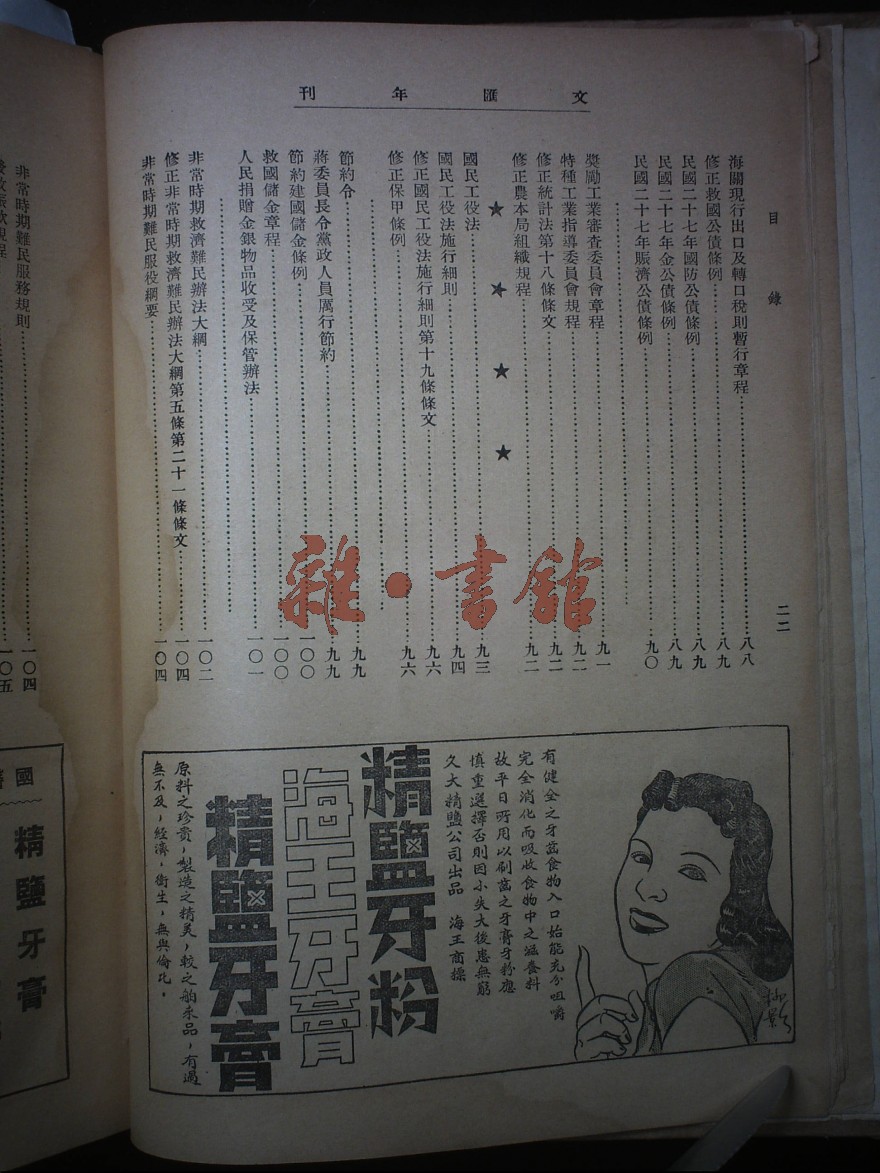 文匯年刊
目錄
二二
海關現行出口及轉口稅則暫行章程……八八
修正救國公債條例……八九
民國二十七年國防公債條例……八九
民國二十七年金公債條例……八九
民國二十七年賑濟公債條例……九〇
獎勵工業審查委員會章程……九一
特種工業指導委員會規程……九二
修正統計法第十八條條文……九二
修正農本局組織規程……九二
★ ★ ★ ★
國民工役法……九三
國民工役法施行細則……九四
修正國民工役法施行細則第十九條條文……九六
修正保甲條例……九六
節約令……九九
蔣委員長令黨政人員厲行節約……九九
節約建國儲金條例……一〇〇
救國儲金章程……一〇〇
人民捐贈金銀物品收受及保管辦法……一〇一
非常時期救濟難民辦法大綱……一〇二
修正非常時期救濟難民辦法大綱第五條第二十一條條文……一〇四
非常時期難民服役綱要……一〇四
有健全之牙齒食物入口始能充分咀嚼
完全消化而吸收食物中之滋養料
故平日所用以刷齒之牙膏牙粉應
慎重選擇否則因小失大後患無窮
久大精鹽公司出品 海王商標
精鹽牙粉
海王牙膏
精鹽牙膏
原料之珍貴，製造之精美，較之舶來品，有過
無不及，經濟，衛生，無與倫比。
非常時期難民服務規則……一〇四
一〇五
國
精鹽牙膏
雜·書館